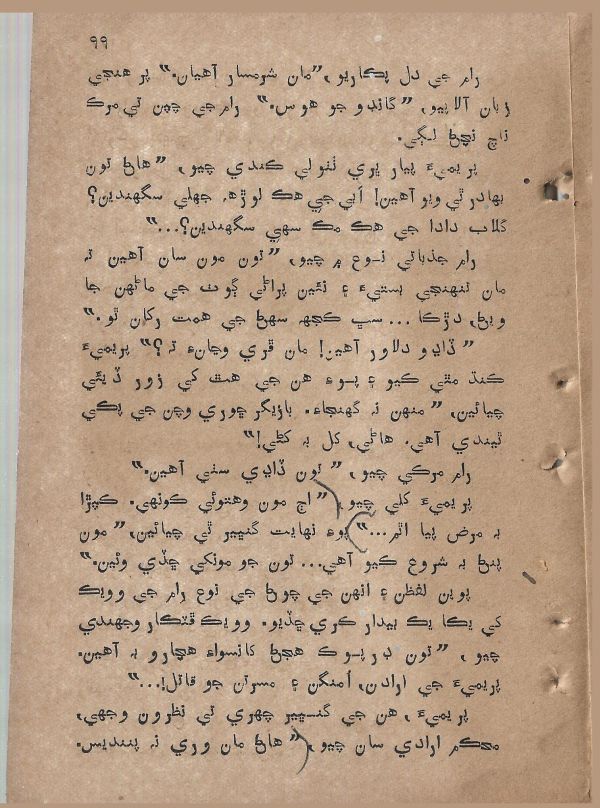 ۹۹
رام جي دل پڪاريو، ”مان شرمسار آهيان.“ پر هنجي
زبان آلاپيو، ”گانڍو جو هوس.“ رام جي چپن تي مرڪ
ناچ نچڻ لڳي.
پريميءَ پيار ڀري ٺٺولي ڪندي چيو، ”هاڻ تون
بهادر ٿي ويو آهين! اَبي جي هڪ لوڙهه جهلي سگهندين؟
گلاب دادا جي هڪ مڪ سهي سگهندين؟...“
رام جذباتي نوع ۾ چيو، ”تون مون سان آهين ته
مان تنهنجي بستيءَ ۽ نئين پراڻي ڳوٺ جي ماڻهن جا
ويڻ، دڙڪا ... سڀ ڪجهه سهڻ جي همت رکان ٿو.“
”ڏاڍو دلاور آهين! مان ڦري وڃانءِ ته؟“ پريميءَ
ڪنڌ مٿي ڪيو ۽ پوءِ هن جي هٿ کي زور ڏيئي
چيائين، ”منهن نه گهنجاءِ. بازيگر ڇوري وچن جي پڪي
ٿيندي آهي. هاڻي، کل به کڻي!“
رام مرڪي چيو، ”تون ڏاڍي سٺي آهين.“
پريميءَ کلي چيو، ”اڄ مون وهنتوئي ڪونهي. ڪپڙا
به مرض پيا اٿم...“ پوءِ نهايت گنڀير ٿي چيائين، ”مون
پنڻ به شروع ڪيو آهي... تون جو مونکي ڇڏي وئين.“
پوين لفظن ۽ انهن جي چوڻ جي نوع رام جي وويڪ
کي يڪا يڪ بيدار ڪري ڇڏيو. وويڪ ڦٽڪار وجهندي
چيو، ”تون ڊرپوڪ هجڻ کانسواءِ هچارو به آهين.
پريميءَ جي ارادن، اُمنگن ۽ مسرتن جو قاتل!...“
پريميءَ، هن جي گنڀير چهري تي نظرون وجهي،
محڪم ارادي سان چيو، ”هاڻ مان وري نه پننديس.